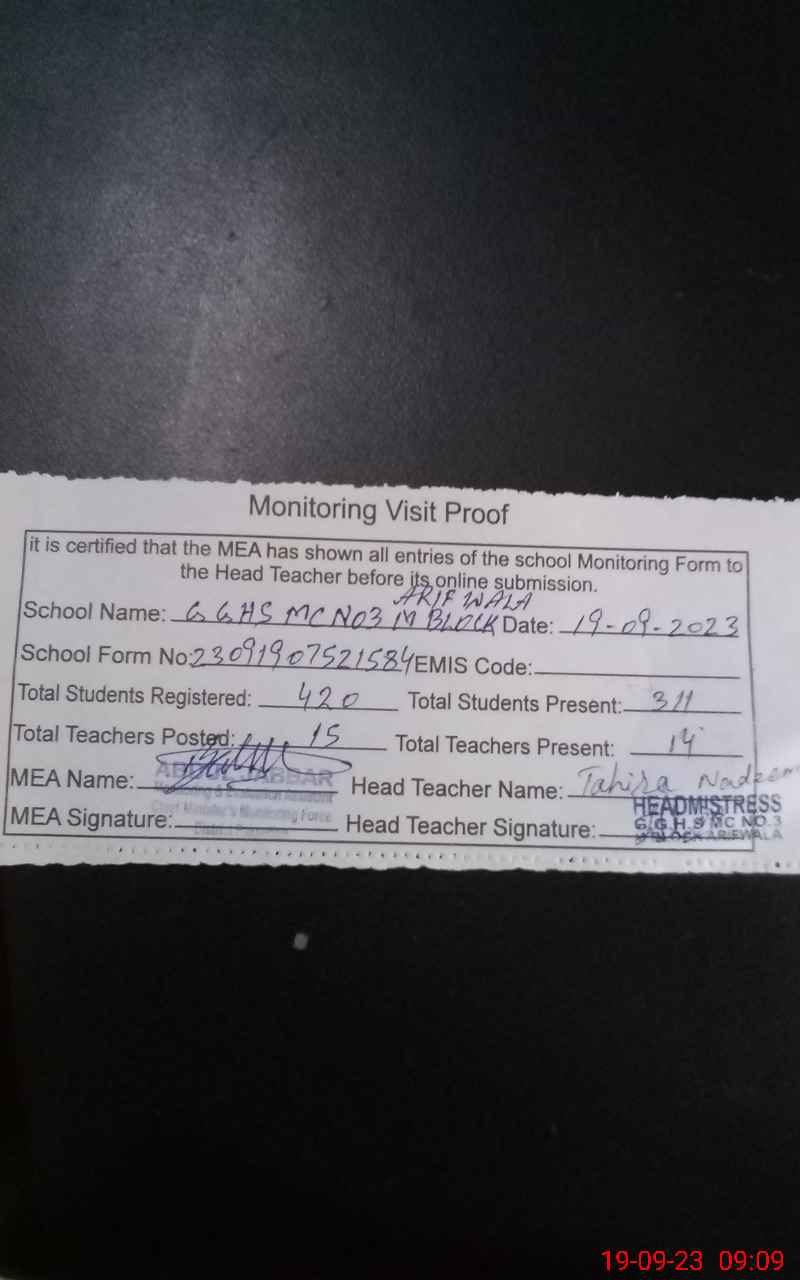 Monitoring Visit Proof
it is certified that the MEA has shown all entries of the school Monitoring Form to
the Head Teacher before its online submission.
ARIF WALA
School Name: G GHS MC NO3 M BLOCK Date: 19-09-2023
School Form No: 23091907521584 EMIS Code:
Total Students Registered: 420 Total Students Present: 311
Total Teachers Posted: 15 Total Teachers Present: 14
MEA Name: ABDUL JABBAR Head Teacher Name: Tahira Nadeem
Monitoring & Evaluation Assistant HEADMISTRESS
MEA Signature: Chief Minister's Monitoring Force Head Teacher Signature: G.G.H.S MC NO.3
District M BLOCK ARIFWALA
19-09-23 09:09